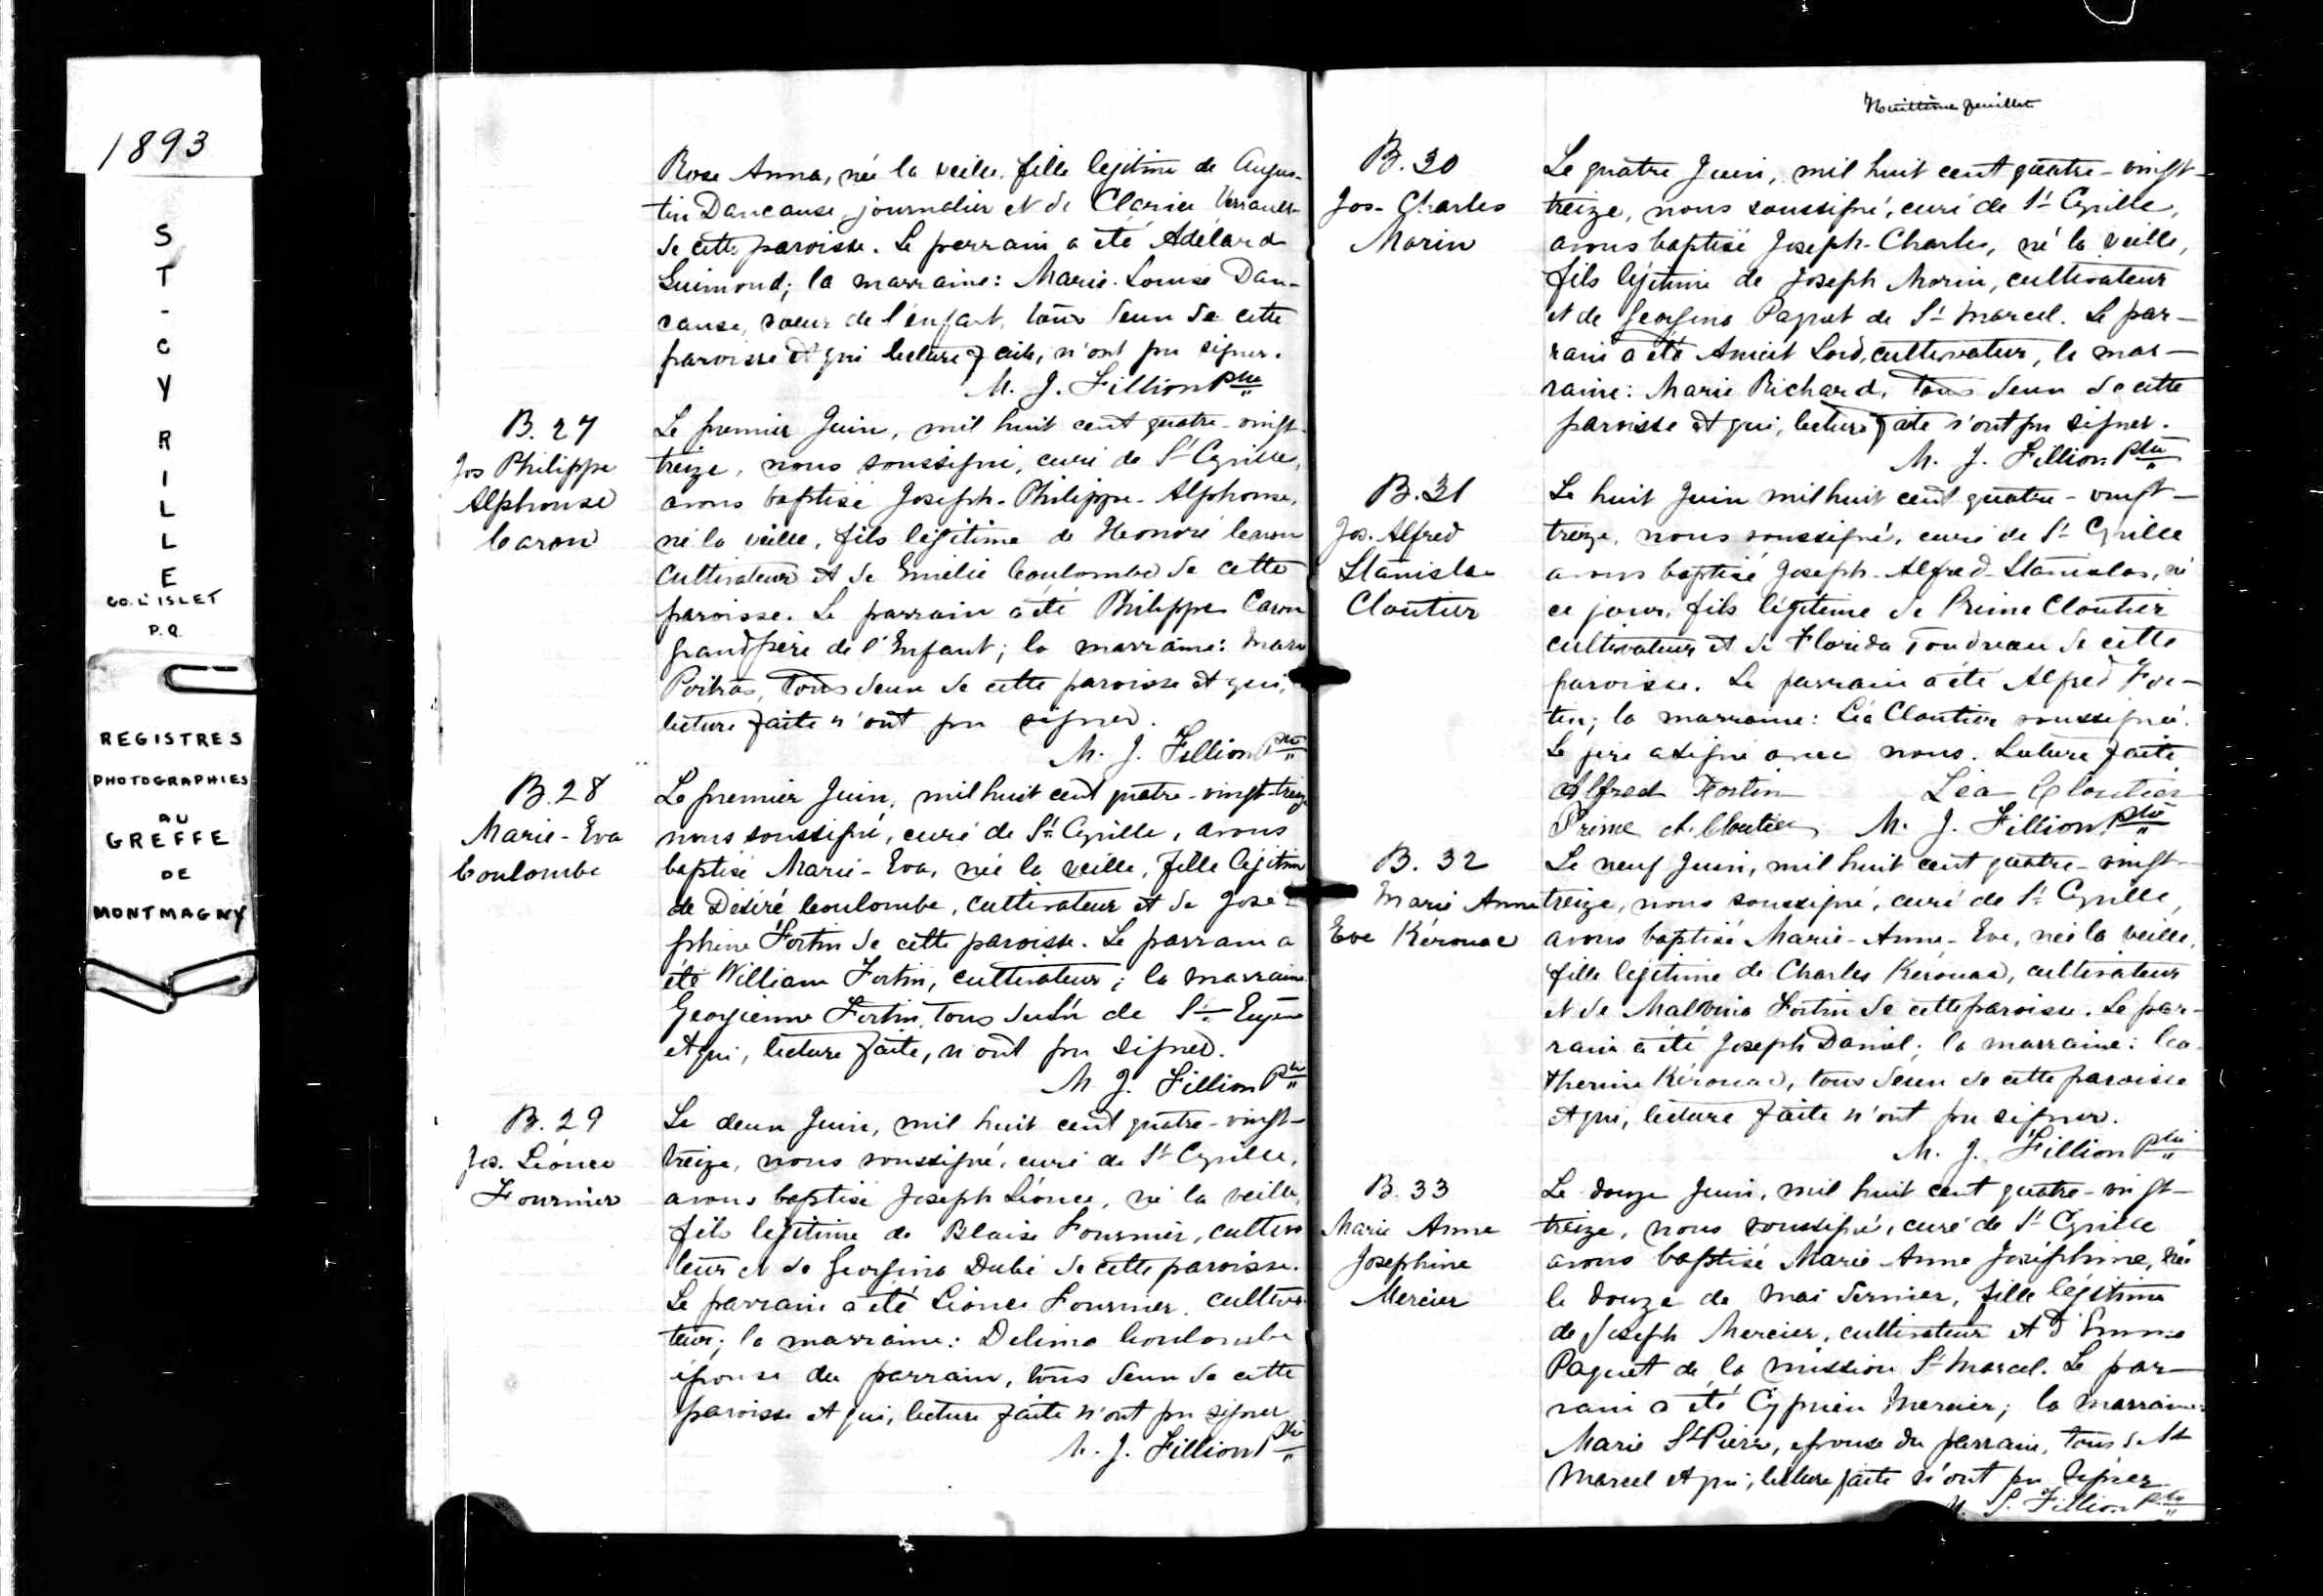 1893
ST-CYRILLE
CO. L'ISLET
P.Q.
REGISTRES
PHOTOGRAPHIES
AU
GREFFE
DE
MONTMAGNY
Rose Anna, née la veille, fille legitime de Augus-
tin Dancause, journalier et de Clarisse Verrault
de cette paroisse. Le parrain a été Adélard
Guimond; la marraine: Marie-Louise Dan-
cause, soeur de l'enfant, tous deux de cette
paroisse et qui lecture faite, n'ont pu signer.
M. J. Fillion Ptre
B. 27
Jos Philippe
Alphonse
Caron
Le premier Juin, mil huit cent quatre-vingt-
treize, nous soussigné, curé de St Cyrille,
avons baptisé Joseph-Philippe-Alphonse,
né la veille, fils légitime de Honoré Caron
cultivateur et de Emélie Coulombe de cette
paroisse. Le parrain a été Philippe Caron
grandpère de l'Enfant; la marraine: Marie
Poitras, tous deux de cette paroisse et qui,
lecture faite n'ont pu signer.
M. J. Fillion Ptre
B. 28
Marie-Eva
Coulombe
Le premier Juin, mil huit cent quatre-vingt-treize
nous soussigné, curé de St Cyrille, avons
baptisé Marie-Eva, née la veille, fille légitime
de Désiré Coulombe, cultivateur et de José-
phine Fortin de cette paroisse. Le parrain a
été William Fortin, cultivateur; la marraine
Georgienne Fortin, tous deux de St Eugène
et qui, lecture faite, n'ont pu signer.
M. J. Fillion Ptre
B. 29
Jos. Léonce
Fournier
Le deux Juin, mil huit cent quatre-vingt-
treize, nous soussigné, curé de St Cyrille,
avons baptisé Joseph Léonce, né la veille,
fils légitime de Blaise Fournier, cultiva
teur et de Georgina Dubé de cette paroisse.
Le parrain a été Léonce Fournier, cultiva-
teur; la marraine: Delima Coulombe
épouse du parrain, tous deux de cette
paroisse et qui, lecture faite n'ont pu signer
M. J. Fillion Ptre
Huitième feuillet
B. 30
Jos-Charles
Morin
Le quatre Juin, mil huit cent quatre-vingt-
treize, nous soussigné, curé de St Cyrille,
avons baptisé Joseph-Charles, né la veille,
fils légitime de Joseph Morin, cultivateur
et de Georgina Paquet de St Marcel. Le par-
rain a été Anicet Lord, cultivateur, la mar-
raine: Marie Richard, tous deux de cette
paroisse et qui, lecture faite n'ont pu signer.
M. J. Fillion Ptre
B. 31
Jos. Alfred
Stanislas
Cloutier
Le huit Juin mil huit cent quatre-vingt-
treize, nous soussigné, curé de St Cyrille
avons baptisé Joseph-Alfred-Stanislas, né
ce jour, fils légitime de Prime Cloutier
cultivateur et de Florida Toudreau de cette
paroisse. Le parrain a été Alfred For-
tin; la marraine: Léa Cloutier soussignée.
Le père a signé avec nous. Lecture faite
Alfred Fortin Léa Cloutier
Prime Cloutier M. J. Fillion Ptre
B. 32
Marie Anne
Eve Kérouac
Le neuf Juin, mil huit cent quatre-vingt-
treize, nous soussigné, curé de St Cyrille,
avons baptisé Marie-Anne-Eve, née la veille,
fille légitime de Charles Kérouac, cultivateur
et de Malvina Fortin de cette paroisse. Le par-
rain a été Joseph Daniel; la marraine: Ca-
therine Kérouac, tous deux de cette paroisse
et qui, lecture faite n'ont pu signer.
M. J. Fillion Ptre
B. 33
Marie Anne
Josephine
Mercier
Le douze Juin, mil huit cent quatre-vingt-
treize, nous soussigné, curé de St Cyrille
avons baptisé Marie Anne Joséphine, née
le douze de mai dernier, fille légitime
de Joseph Mercier, cultivateur et d'Emma
Paquet de la mission St Marcel. Le par-
rain a été Cyprien Mercier; la marraine:
Marie St Pierre, épouse du parrain, tous de St
Marcel et qui, lecture faite n'ont pu signer
M. J. Fillion Ptre